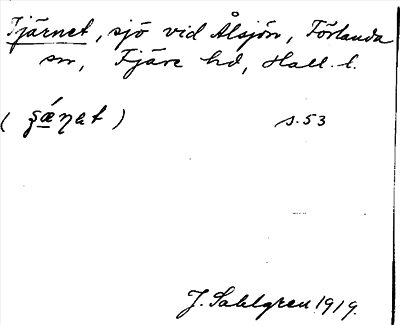 Tjärnet, sjö vid Ålsjön, Förlanda
sn, Fjäre hd, Hall. l.
(ʂǽɳet) s. 53
J. Sahlgren. 1919.